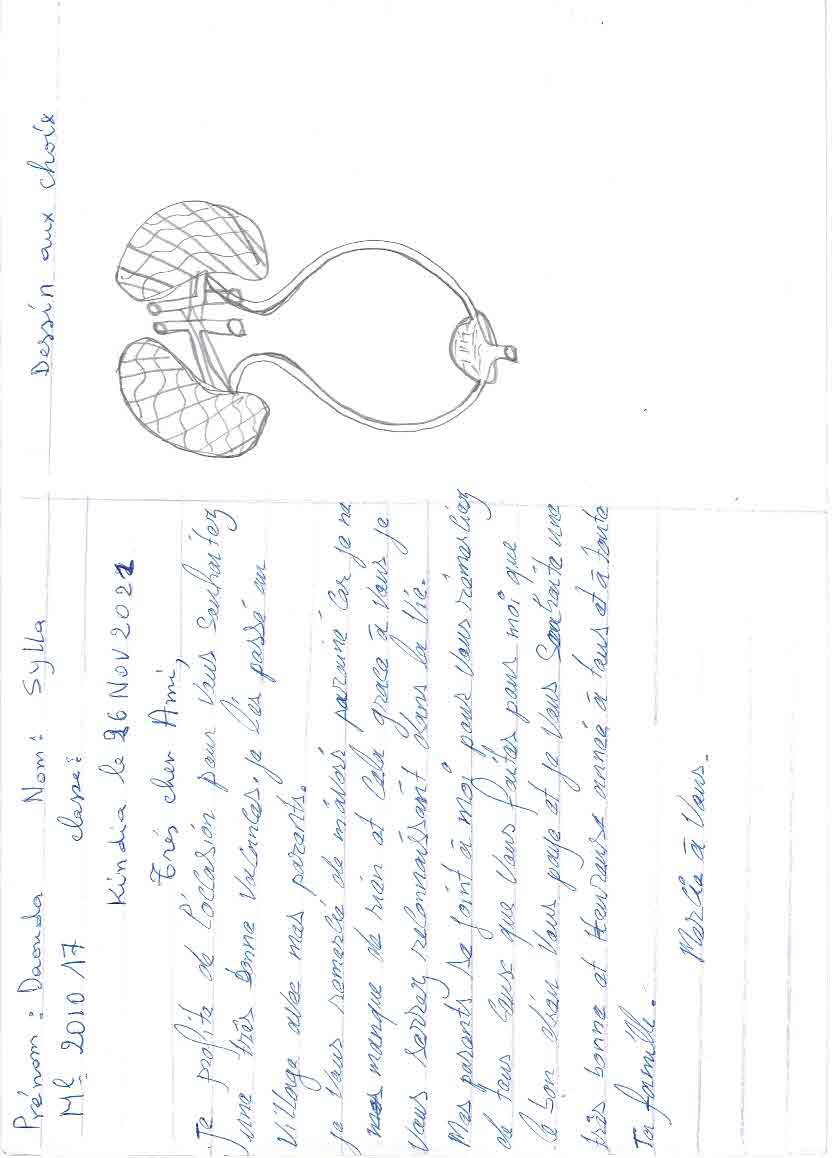 Prénom : Daouda Nom : Sylla
Mle 2010 17 classe :
Kindia le 26 Nov 2021
Très cher Ami,
Je profite de l'occasion pour vous souhaitez
une très bonne vacances. je l'es passé au
village avec mes parents.
je vous remercie de m'avoir parainé car je ne
manque de rien et cela grace à vous je
vous serrez reconnaissant dans la vie.
Mes parents se joint à moi pour vous remerciez
de tous ceux que vous faites pour moi que
le bon dieu vous paye et je vous souhaite une
très bonne et Heureuse année à tous et à toute
Ta famille.
Mercie à vous.
Dessin aux choix